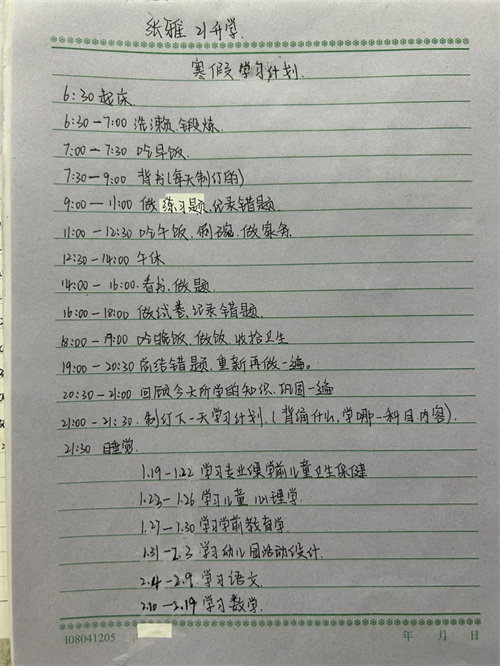 张雅 21升学.
寒假学习计划.
6:30起床
6:30—7:00 洗漱、锻炼.
7:00—7:30 吃早饭.
7:30—9:00 背书(每天制订的)
9:00—11:00 做 练习题、记录错题
11:00—12:30 吃午饭、刷碗、做家务
12:30—14:00 午休
14:00—16:00.看书、做题.
16:00—18:00 做试卷、记录错题.
18:00—19:00 吃晚饭、做饭、收拾卫生
19:00—20:30 总结错题、重新再做一遍。
20:30—21:00 回顾今天所学的知识、巩固一遍
21:00—21:30.制订下一天学习计划.(背诵什么、学哪一科目、内容).
21:30 睡觉.
1.19—1.22 学习专业课学前儿童卫生保健
1.23—1.26 学习儿童心理学
1.27—1.30 学习学前教育学.
1.31—2.3 学习幼儿园活动设计.
2.4—2.9.学习语文.
2.10—2.19学习数学.
I08041205 年 月 日